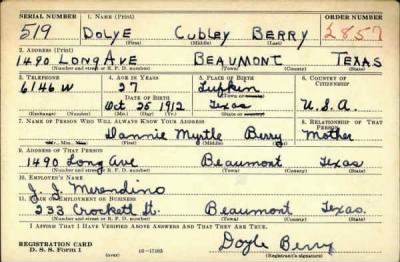 SERIAL NUMBER 1. NAME (Print) ORDER NUMBER
519 DOLYE CUBLEY BERRY 2857
(First) (Middle) (Last)
2. ADDRESS (Print)
1490 LONG AVE BEAUMONT TEXAS
(Number and street or R. F. D. number) (Town) (County) (State)
3. TELEPHONE 4. AGE IN YEARS 5. PLACE OF BIRTH 6. COUNTRY OF CITIZENSHIP
6146 W 27 Lufkin
DATE OF BIRTH (Town or county)
Oct 25 1912 Texas U.S.A.
(Exchange) (Number) (Mo.) (Day) (Yr.) (State or country)
7. NAME OF PERSON WHO WILL ALWAYS KNOW YOUR ADDRESS 8. RELATIONSHIP OF THAT PERSON
Dannie Myrtle Berry Mother
(Mr., Mrs., Miss) (First) (Middle) (Last)
9. ADDRESS OF THAT PERSON
1490 Long Ave Beaumont Texas
(Number and street or R. F. D. number) (Town) (County) (State)
10. EMPLOYER'S NAME
J. J. Merendino
11. PLACE OF EMPLOYMENT OR BUSINESS
233 Crockett St. Beaumont Texas.
(Number and street or R. F. D. number) (Town) (County) (State)
I AFFIRM THAT I HAVE VERIFIED ABOVE ANSWERS AND THAT THEY ARE TRUE.
REGISTRATION CARD
D. S. S. Form 1 (over) 16—17105 Doyle Berry
(Registrant's signature)